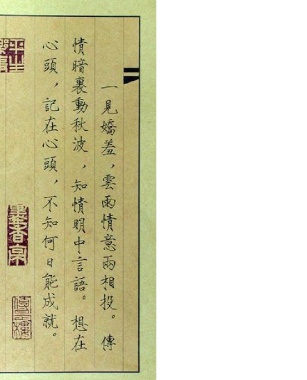 一見嬌羞，雲雨情意兩相投。傳
情暗裏動秋波，知情明中言語。想在
心頭，記在心頭，不知何日能成就。
書香第